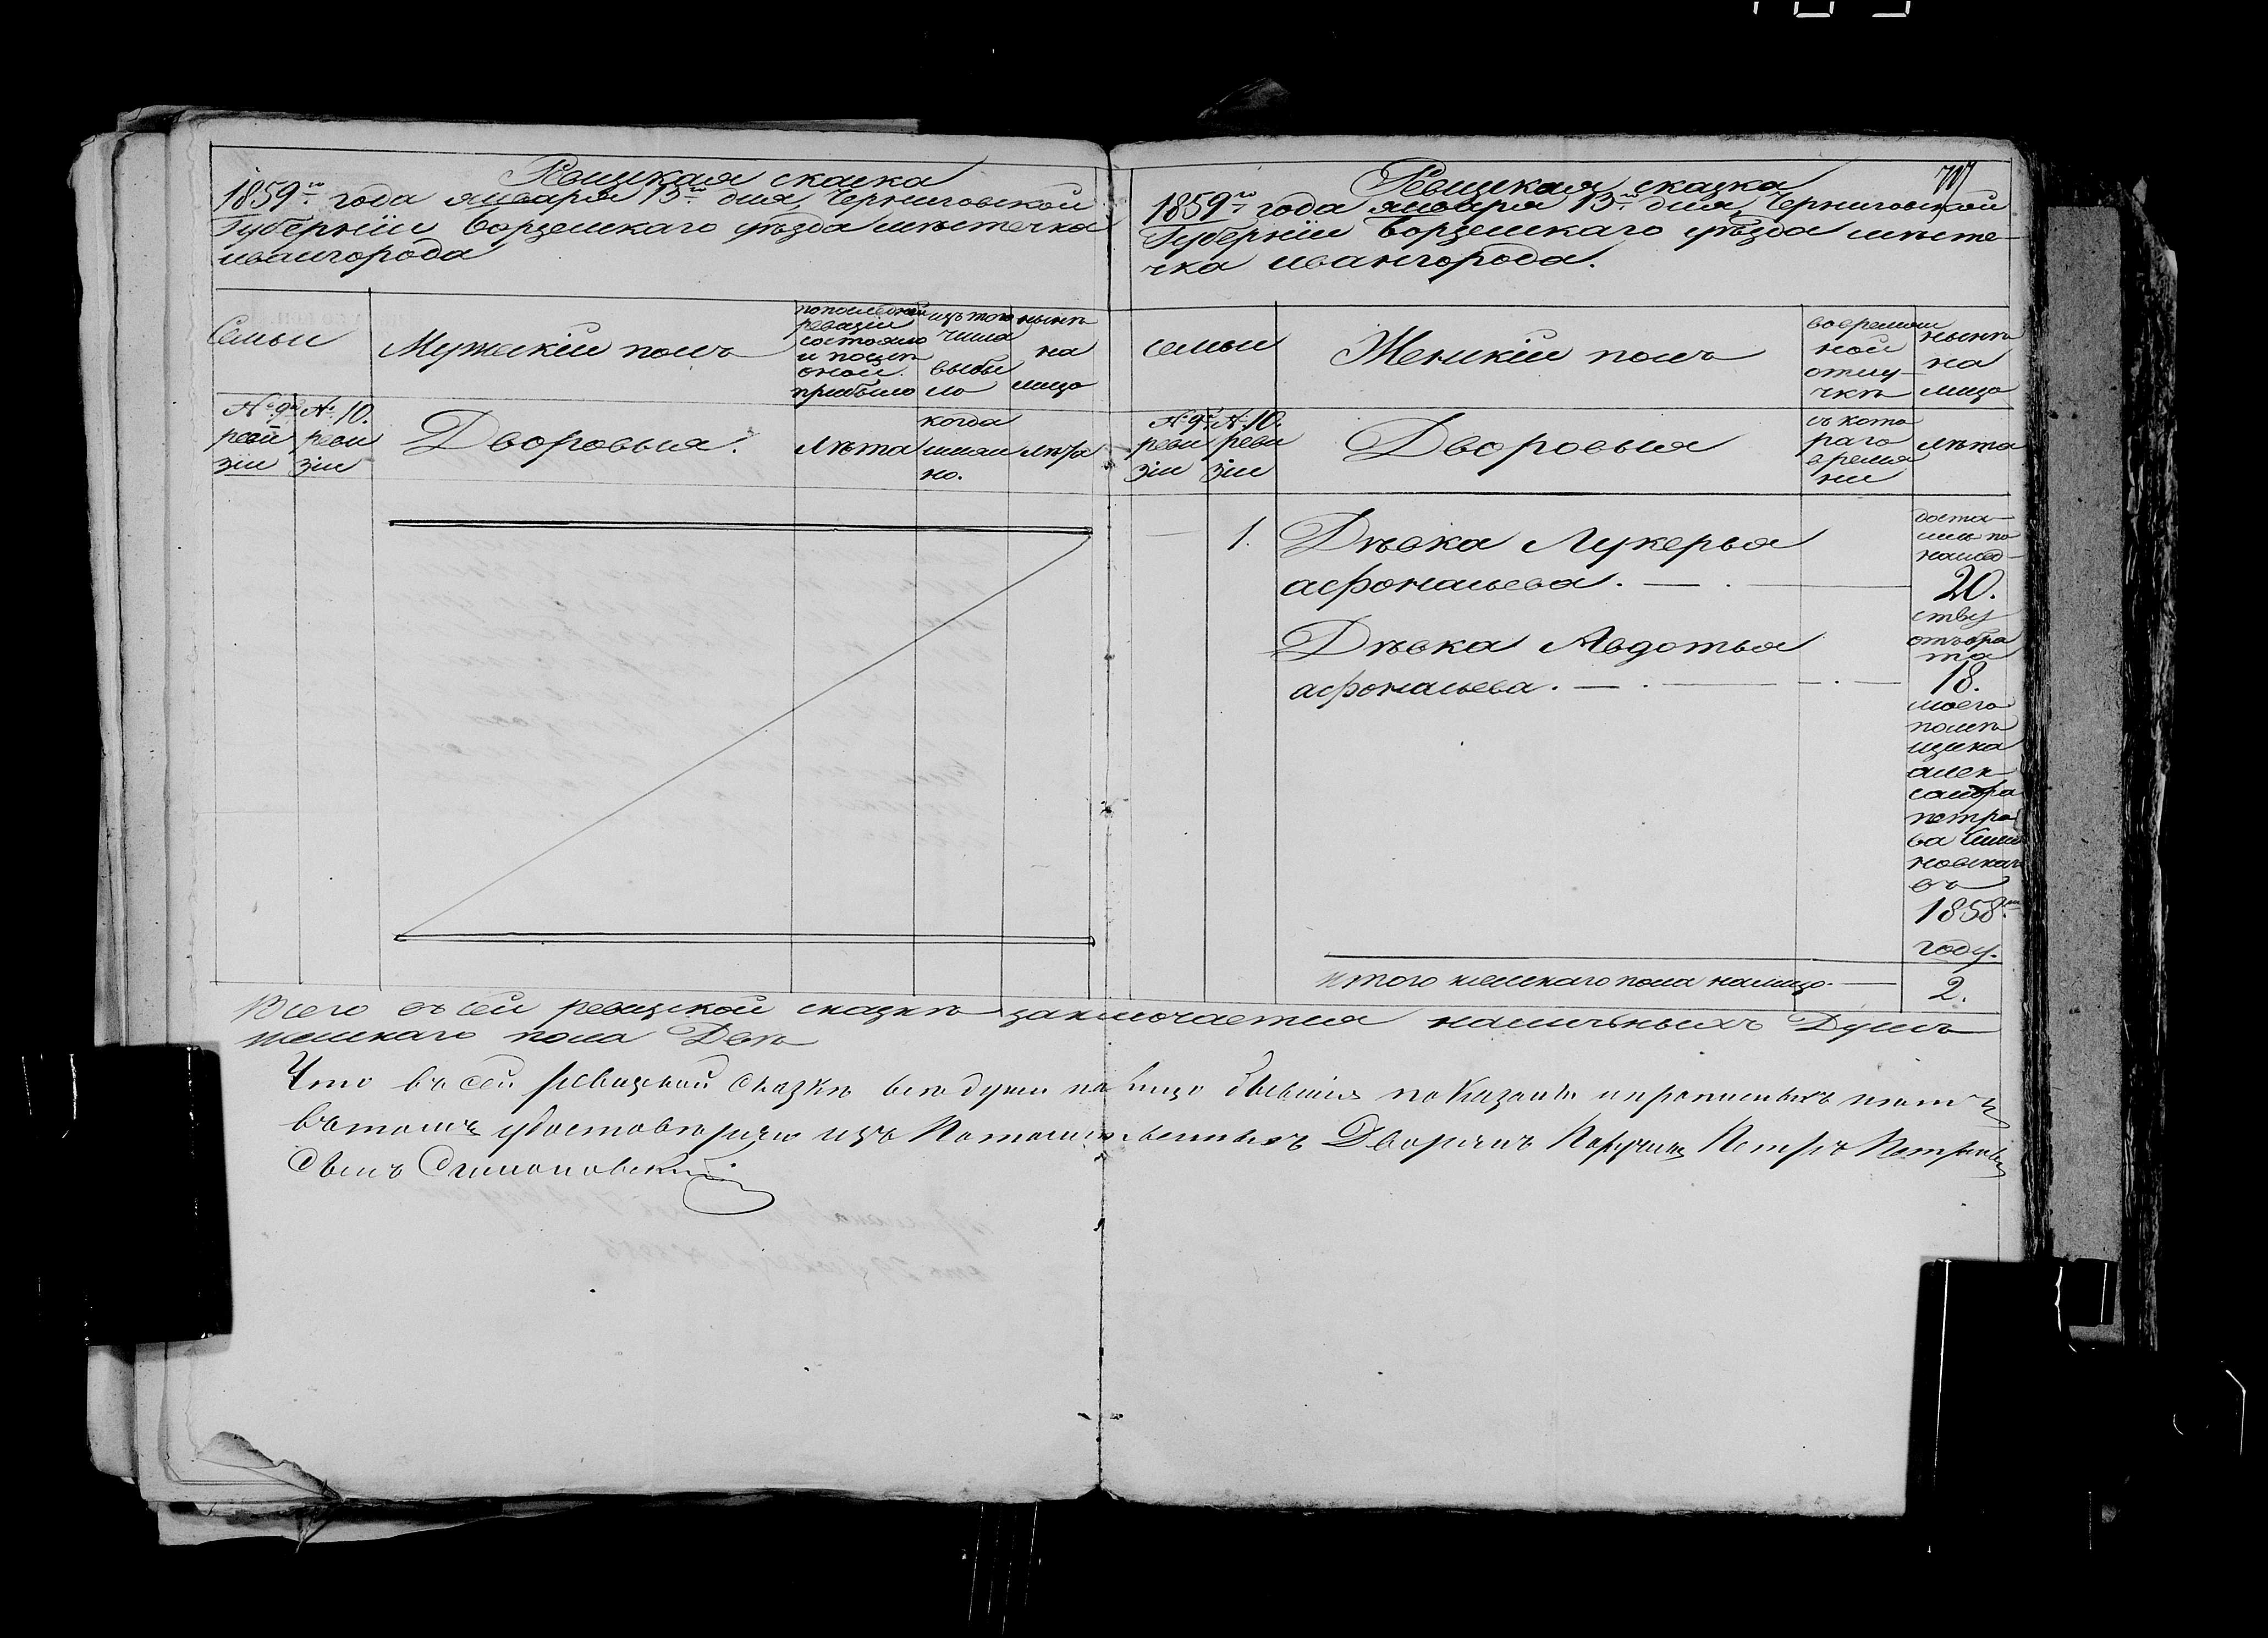 Ревизкая скаска
1859го года января 13го дня, Черниговской
Губерніи Борзенскаго уѣзда мѣстечка
ивангорода
Семьи
Мужескій полъ
попослѣдней
ревизіи
состояло
и послѣ
оной
прибыло
изъ того
числа
выбы
ло
нынѣ
на
лицо
№ 9й
реви
зіи
№ 10.
реви
зіи
Дворовыя.
лѣта
когда
имян
но.
лѣта
Ревизкая сказка
1859го года января 13го дня, Черниговской
Губерніи Борзенскаго уѣзда мѣсте-
чка ивангорода.
семьи
Женскій полъ
вовремян
ной
отлу-
чкѣ
нынѣ
на
лицо
№ 9й
реви
зіи
№ 10.
реви
зіи
Дворовыя
съ кото
раго
время
ни
лѣта
1. Дѣвка Лукерья
афонасьева. 20.
Дѣвка Авдотья
афонасьева. 18.
доста-
лись по
наслед-
ству
отъ бра
та
моего
помѣ
щика
алек-
сандра
петро
ва Симо
новскаго
въ
1858м
году.
итого женскаго пола налицо 2.
Всего въ сей ревизской сказкѣ заключается наличныхъ Душъ
женскаго пола Двѣ
Что въ сей ревизской сказкѣ всѣ души на лицо бывшія показаны и прописныхъ нѣтъ
въ томъ удостовѣряю изъ Потомственныхъ Дворянъ Поручикъ Петръ Петровъ
Сынъ Симоновскій